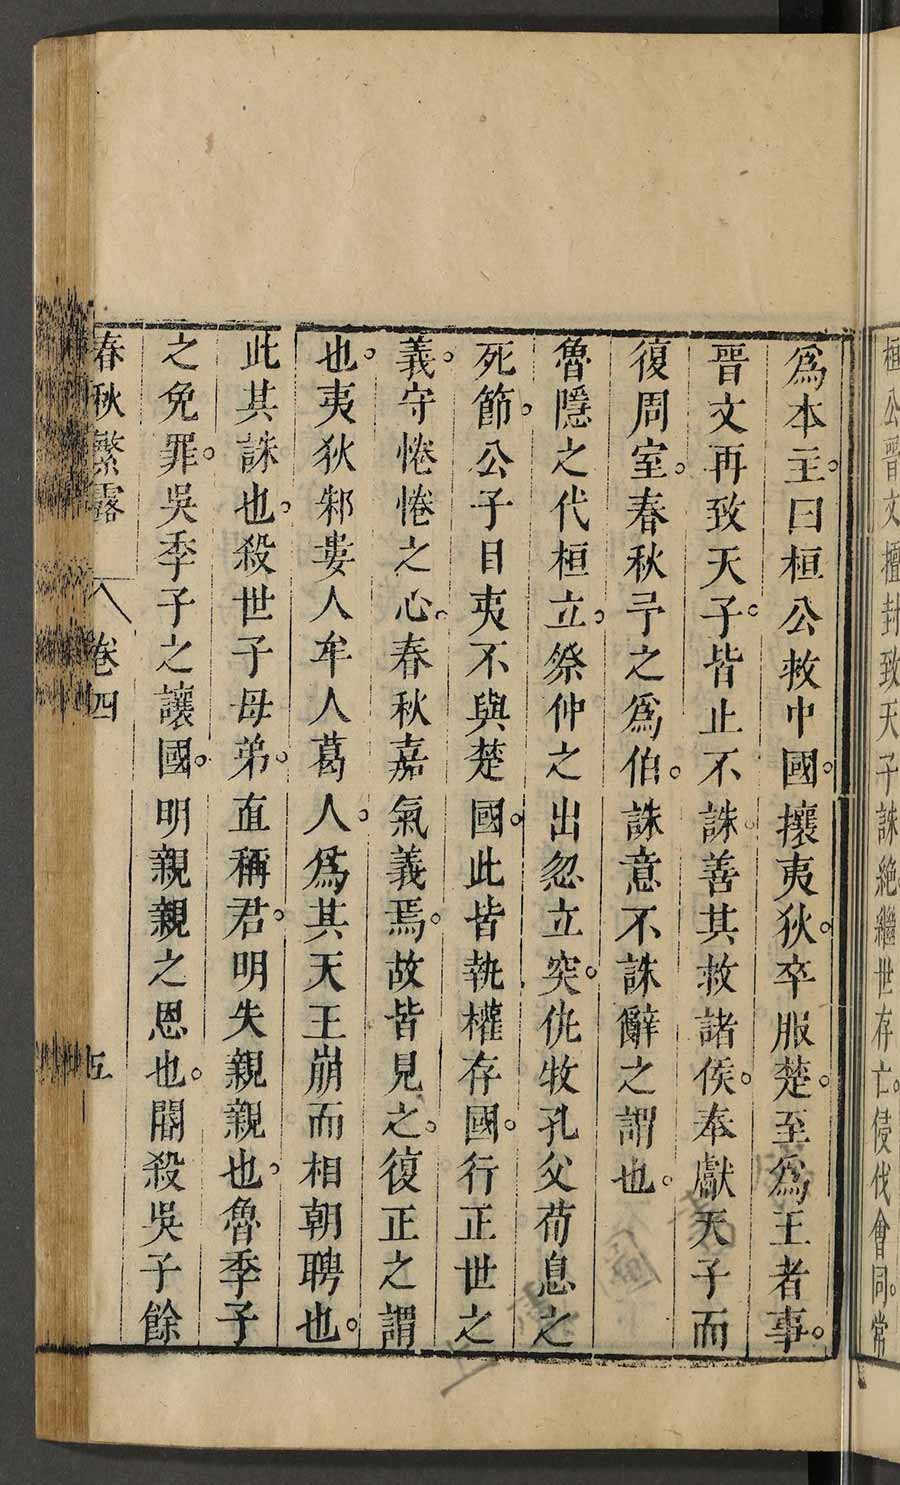 桓公晉文擅封致天子誅絶繼世存亡侵伐會同常
爲本主曰桓公救中國攘夷狄卒服楚至爲王者事
晉文再致天子皆止不誅善其救諸侯奉獻天子而
復周室春秋予之爲伯誅意不誅辭之謂也
魯隱之代桓立祭仲之出忽立突仇牧孔父荀息之
死節公子目夷不與楚國此皆執權存國行正世之
義守惓惓之心春秋嘉氣義焉故皆見之復正之謂
也夷狄邾婁人牟人葛人爲其天王崩而相朝聘也
此其誅也殺世子母弟直稱君明失親親也魯季子
之免罪吳季子之讓國明親親之恩也閽殺吳子餘
春秋繁露 卷四 五